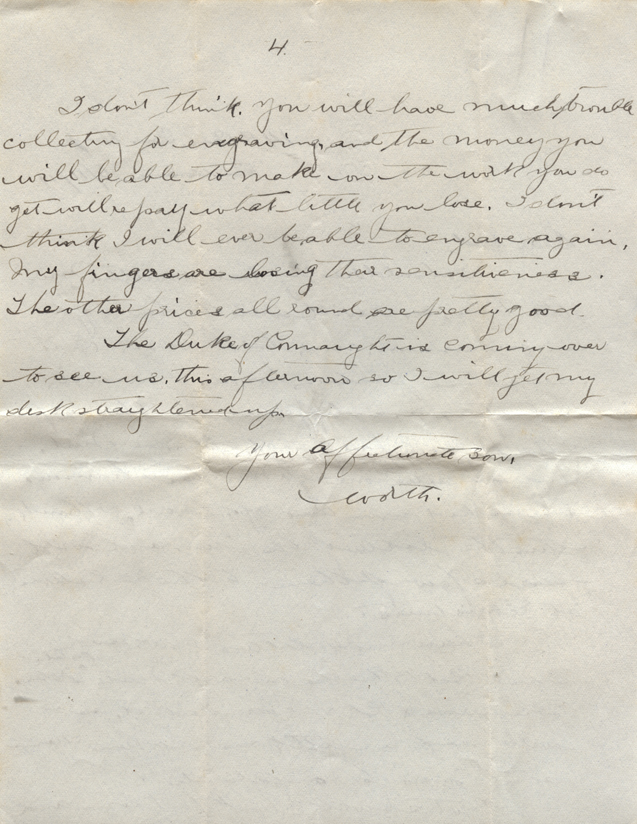 4.
I don't think you will have much trouble
collecting for engraving, and the money you
will be able to make on the work you do
get will repay what little you lose. I don't
think I will ever be able to engrave again.
My fingers are losing their sensitiveness.
The other prices all round are pretty good.
The Duke of Connaught is coming over
to see us this afternoon so I will get my
desk straightened up.
Your affectionate son,
Worth.